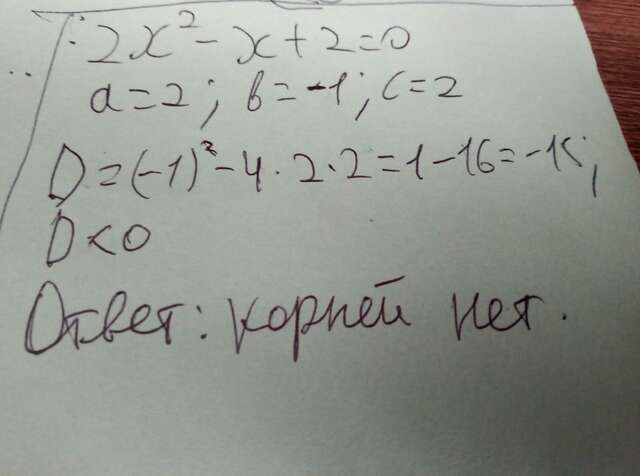 2x² - x + 2 = 0
a = 2; b = -1; c = 2
D = (-1)² - 4 · 2 · 2 = 1 - 16 = -15;
D < 0
Ответ: корней нет.